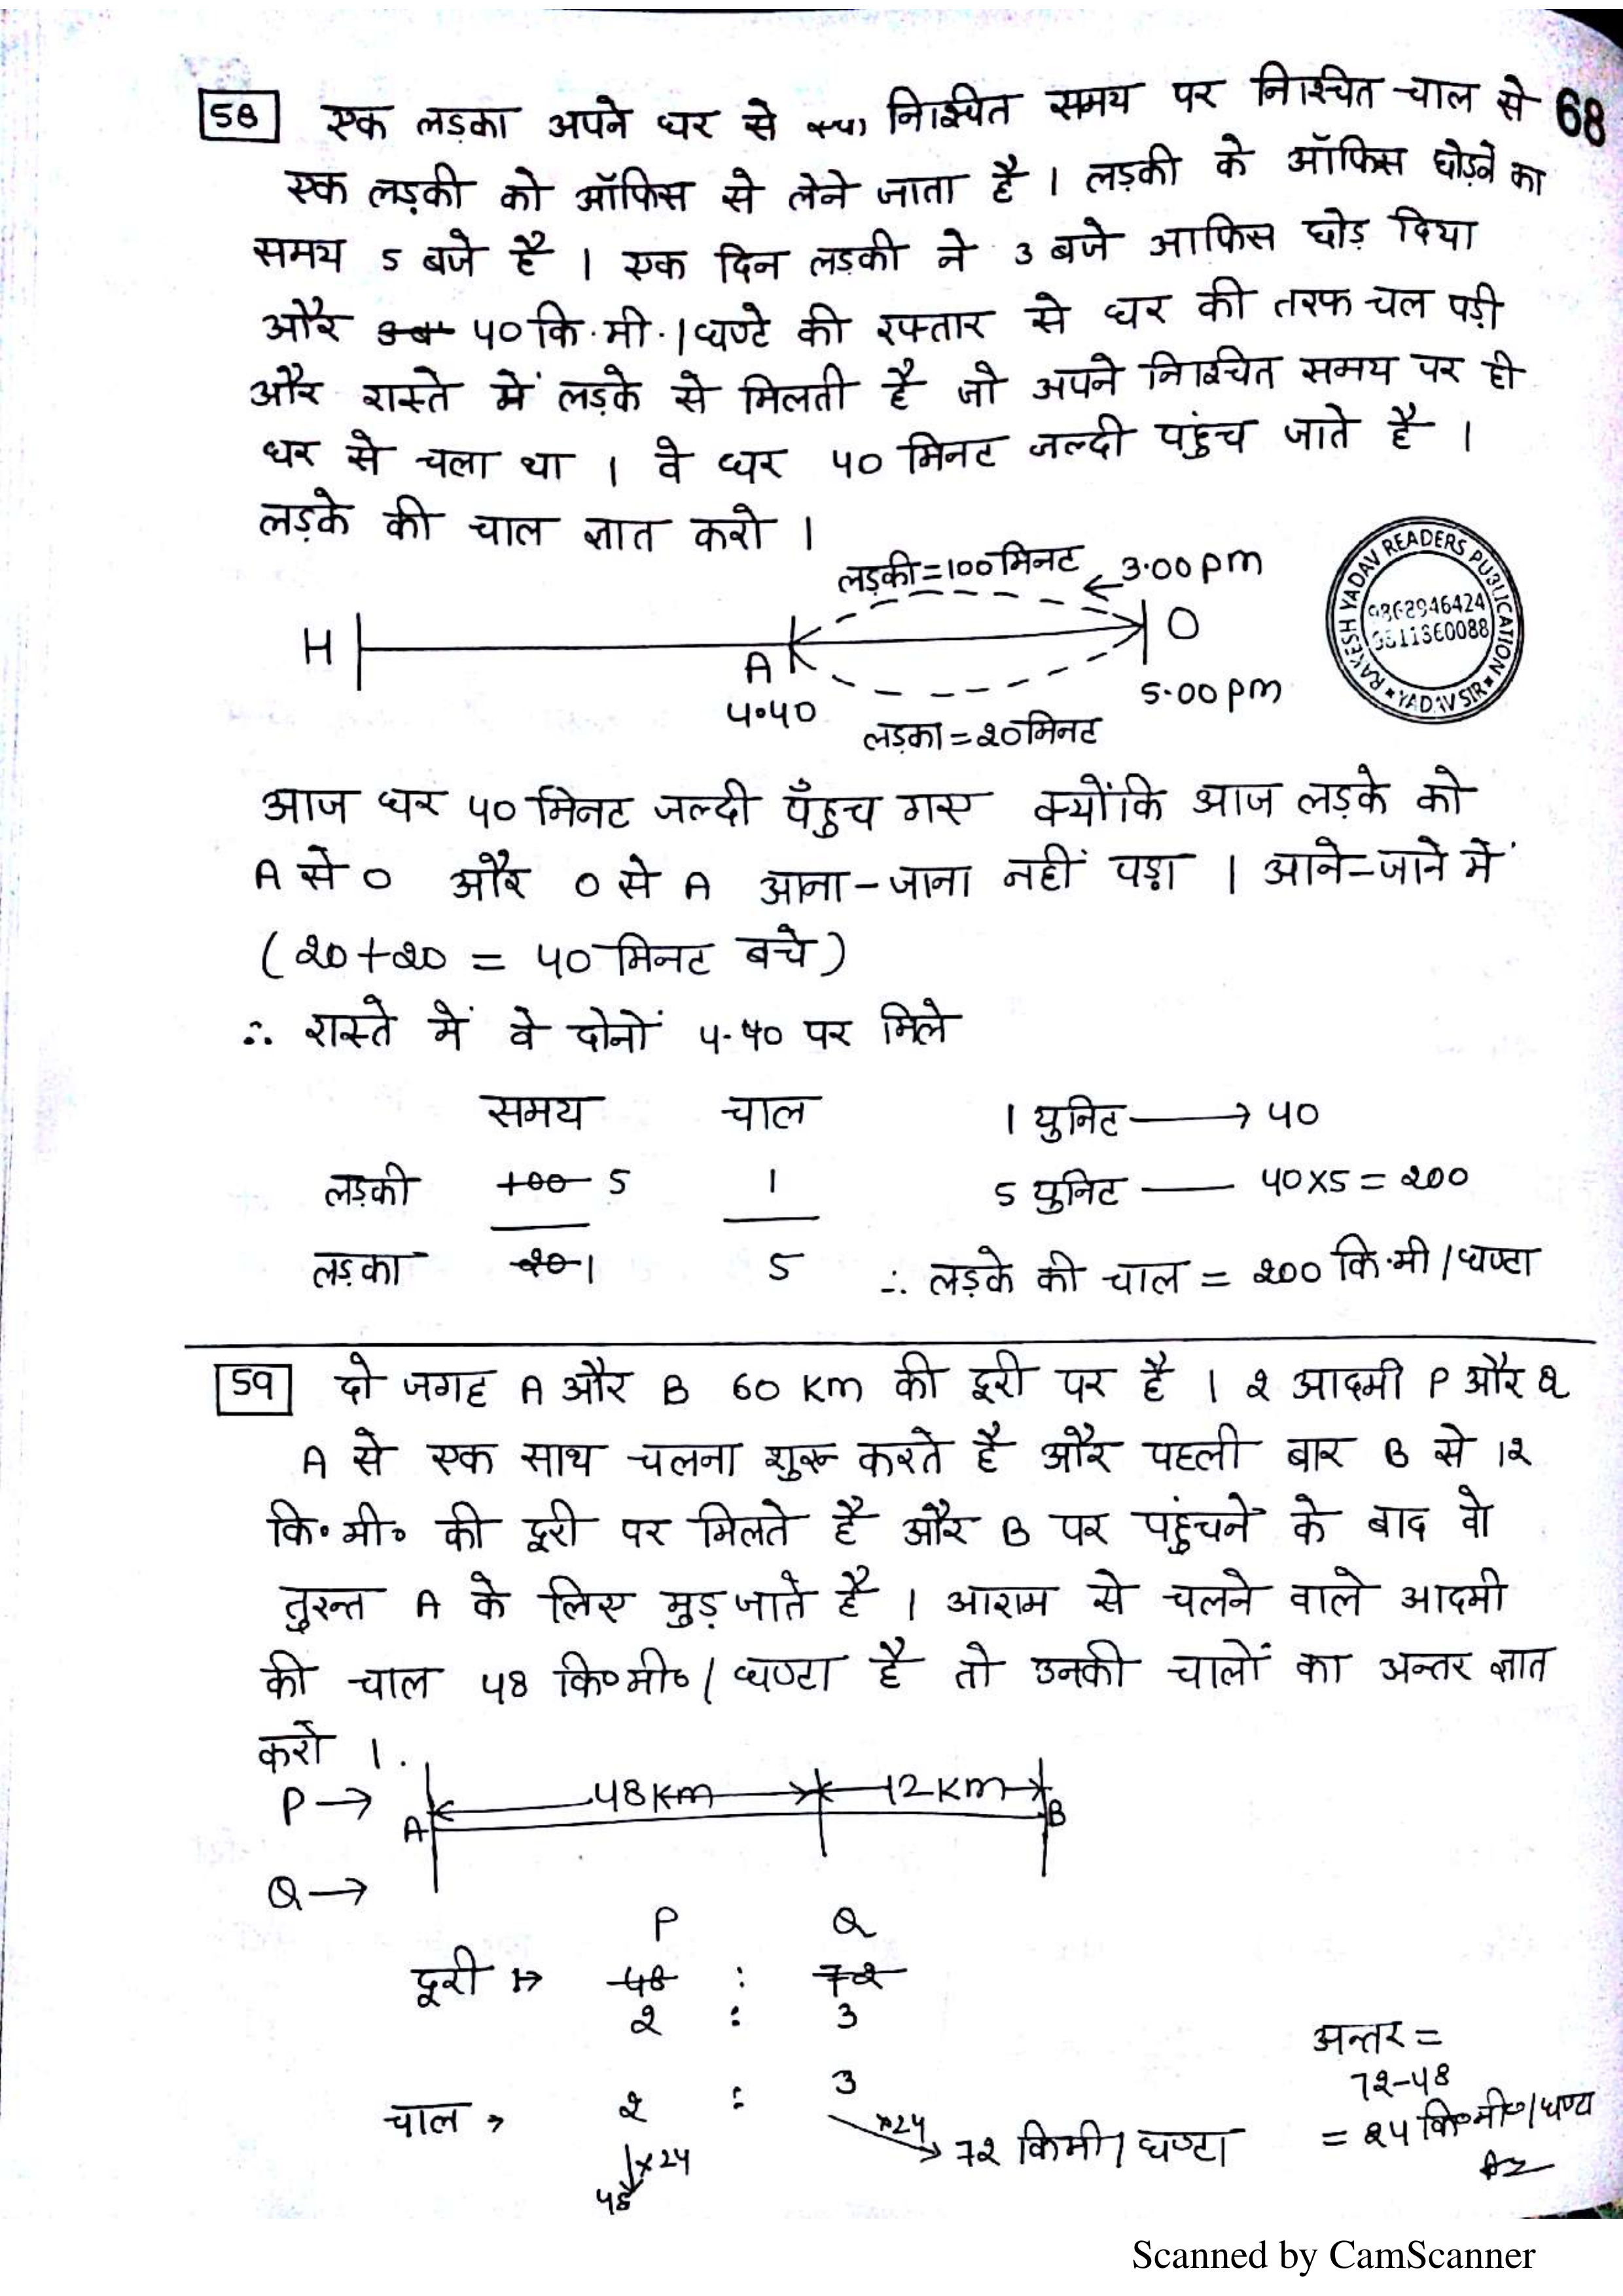 58 एक लड़का अपने घर से निश्चित समय पर निश्चित चाल से 68
एक लड़की को ऑफिस से लेने जाता है । लड़की के ऑफिस छोड़ने का
समय 5 बजे है । एक दिन लड़की ने 3 बजे आफिस छोड़ दिया
और 40 कि.मी.।घण्टे की रफ्तार से घर की तरफ चल पड़ी
और रास्ते में लड़के से मिलती है जो अपने निश्चित समय पर ही
घर से चला था । वे घर 40 मिनट जल्दी पहुंच जाते है ।
लड़के की चाल ज्ञात करो ।
लड़की=100मिनट 3.00 pm
H O
A
4.40 5.00 pm
लड़का=20मिनट
RAKESH YADAV READERS PUBLICATION
YADAV SIR
आज घर 40 मिनट जल्दी पँहुच गए क्योंकि आज लड़के को
A से O और O से A आना-जाना नहीं पड़ा । आने-जाने में
(20+20 = 40 मिनट बचे)
∴ रास्ते में वे दोनों 4.40 पर मिले
समय चाल 1 युनिट → 40
लड़की 100 5 1 5 युनिट — 40x5 = 200
लड़का 20 1 5 ∴ लड़के की चाल = 200 कि.मी/घण्टा
59 दो जगह A और B 60 km की दूरी पर है । 2 आदमी P और Q
A से एक साथ चलना शुरू करते है और पहली बार B से 12
कि॰मी॰ की दूरी पर मिलते है और B पर पहुंचने के बाद वो
तुरन्त A के लिए मुड़ जाते है । आराम से चलने वाले आदमी
की चाल 48 कि॰मी॰/घण्टा है तो उनकी चालों का अन्तर ज्ञात
करो ।
P → 48km 12km
A B
Q →
P Q
दूरी → 48 : 72
2 : 3
अन्तर =
72-48
= 24 कि॰मी॰/घण्टा
चाल → 2 : 3
x24 x24 72 किमी/घण्टा
48
Scanned by CamScanner